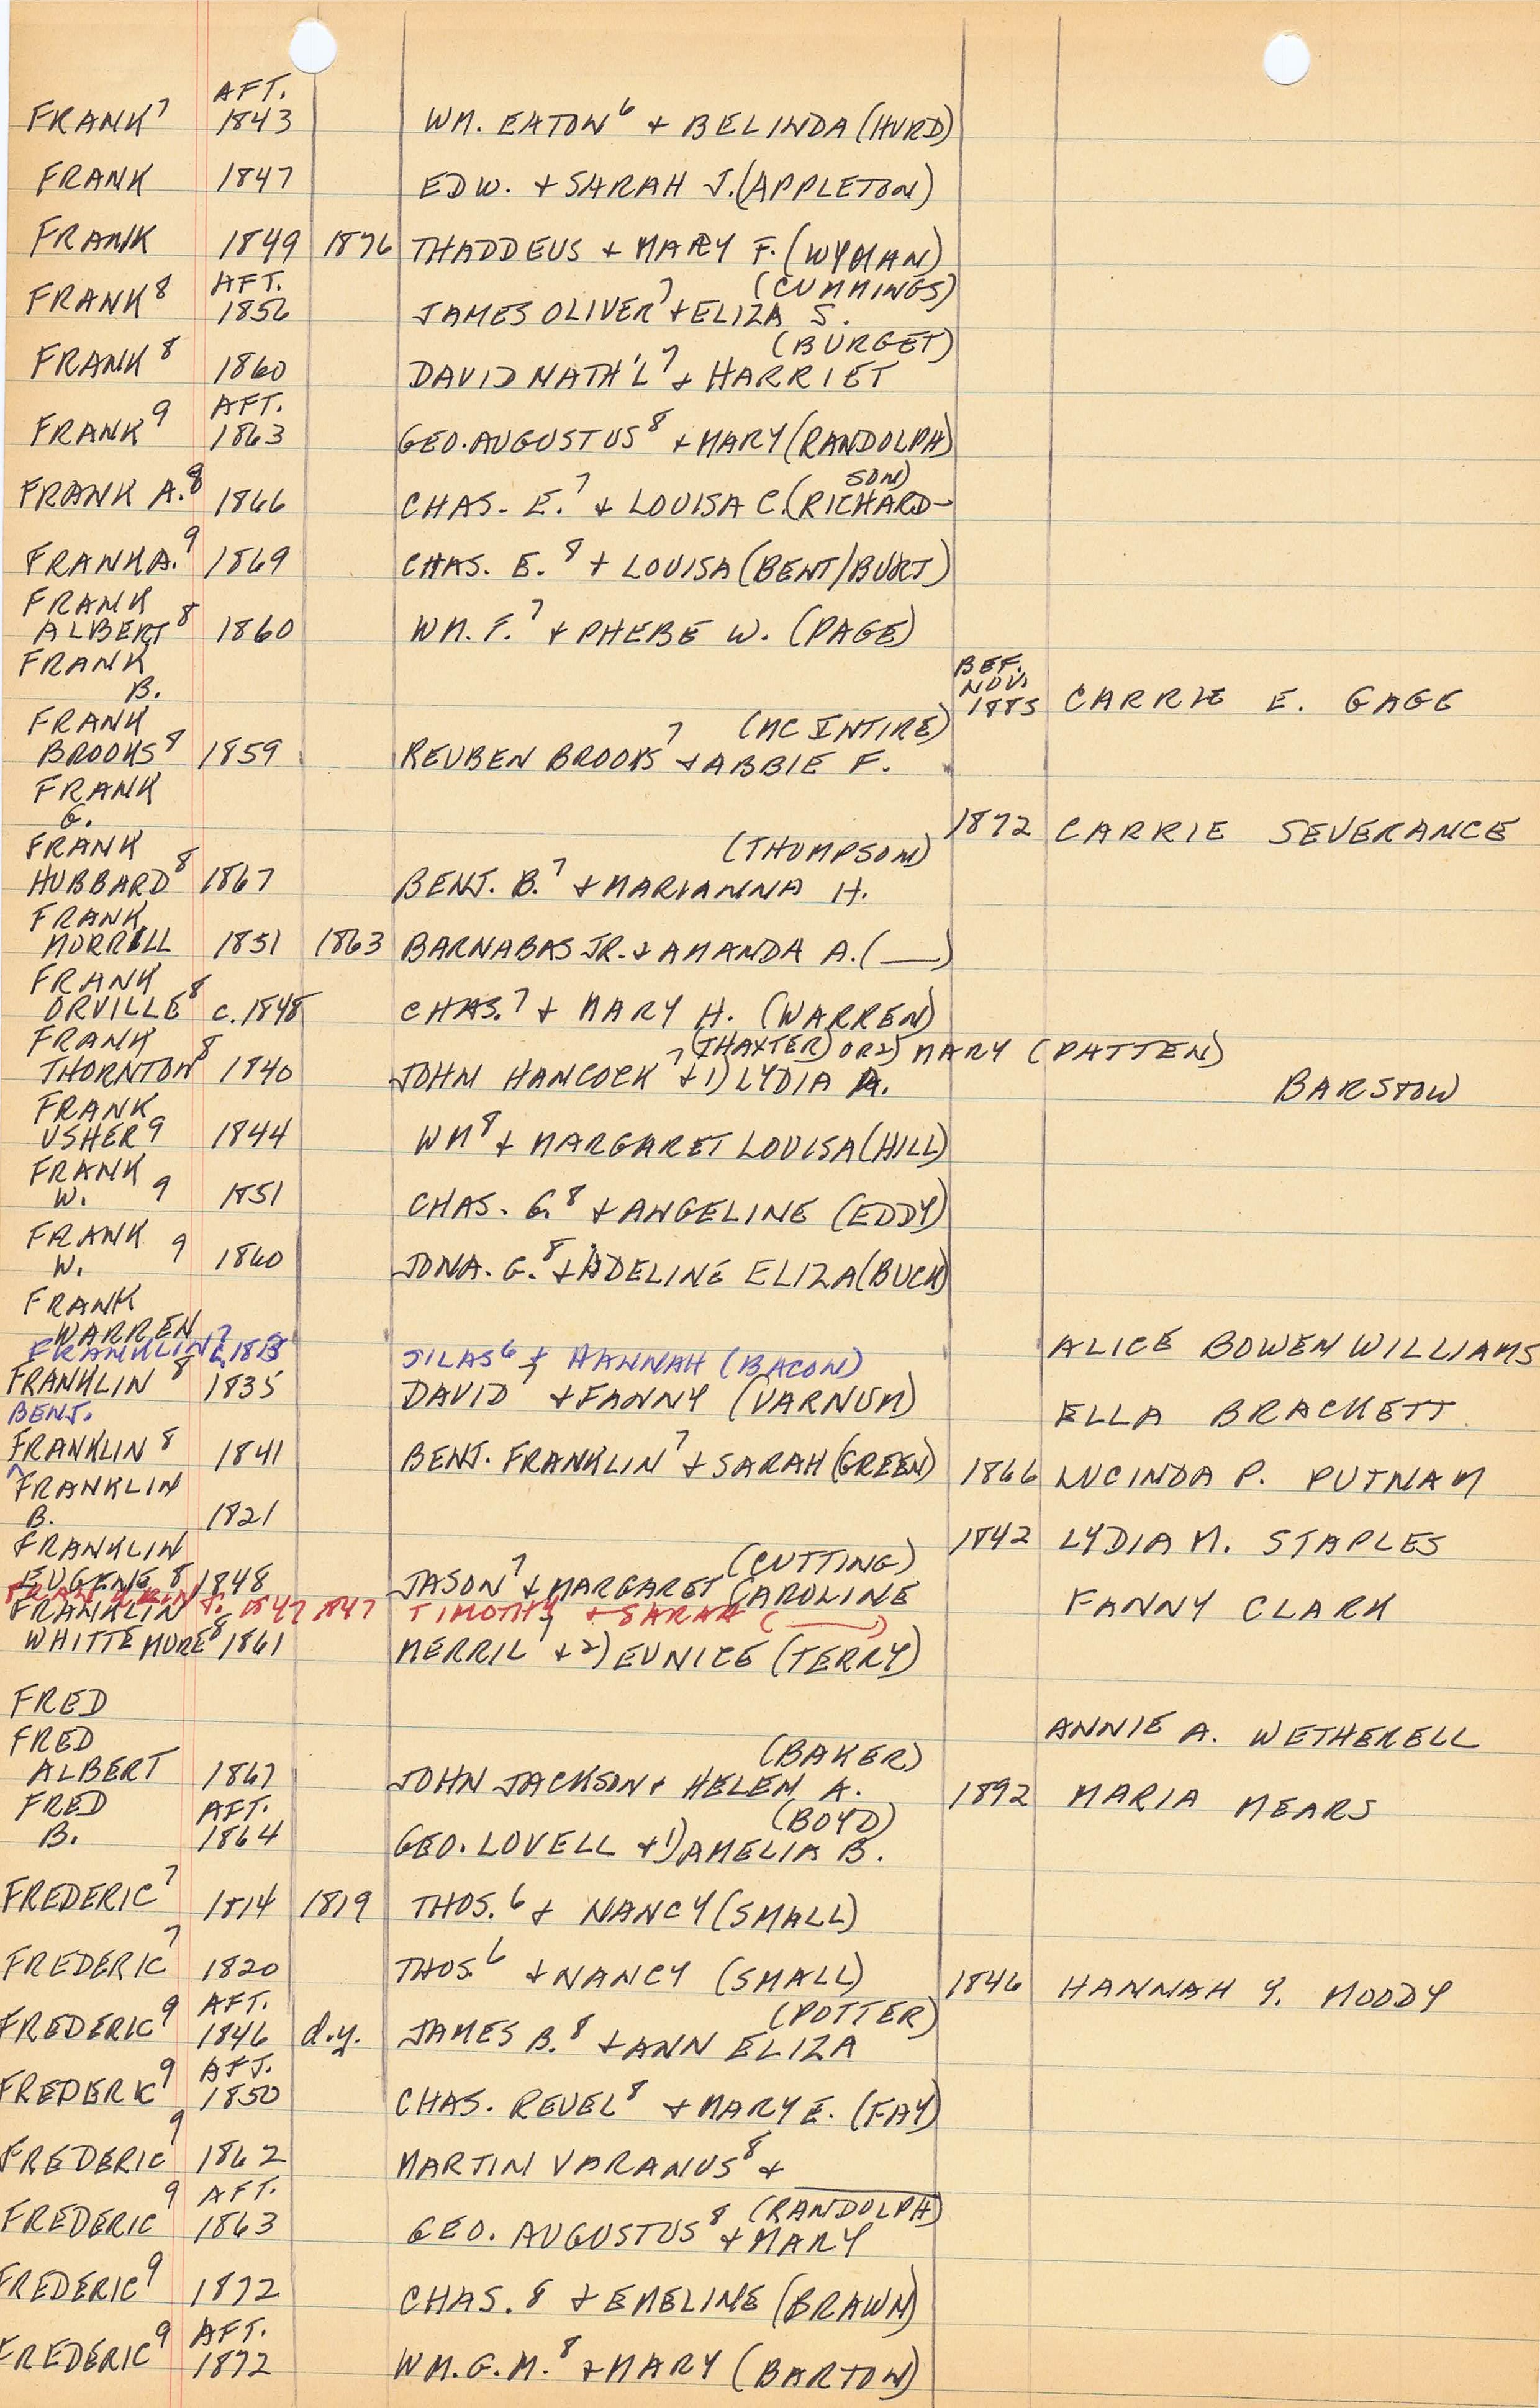 AFT.
FRANK⁷ 1843 WM. EATON⁶ + BELINDA (HURD)
FRANK 1847 EDW. + SARAH J. (APPLETON)
FRANK 1849 1876 THADDEUS + MARY F. (WYMAN)
AFT. (CUMMINGS)
FRANK⁸ 1856 JAMES OLIVER⁷ + ELIZA S.
(BURGET)
FRANK⁸ 1860 DAVID NATH'L⁷ + HARRIET
AFT.
FRANK⁹ 1863 GEO. AUGUSTUS⁸ + MARY (RANDOLPH)
SON)
FRANK A.⁸ 1866 CHAS. E.⁷ + LOUISA C. (RICHARD-
FRANK A.⁹ 1869 CHAS. E.⁸ + LOUISA (BENT/BURT)
FRANK
ALBERT⁸ 1860 WM. F.⁷ + PHEBE W. (PAGE)
FRANK BEF.
B. NOV. 1885 CARRIE E. GAGE
FRANK (MC INTIRE)
BROOKS⁸ 1859 REUBEN BROOKS⁷ + ABBIE F.
FRANK
G. 1872 CARRIE SEVERANCE
FRANK (THOMPSON)
HUBBARD⁸ 1867 BENJ. B.⁷ + MARIANNA H.
FRANK
MORRILL 1851 1863 BARNABAS JR. + AMANDA A. (___)
FRANK
ORVILLE⁸ c. 1848 CHAS.⁷ + MARY H. (WARREN)
FRANK (THAXTER) OR 2) MARY (PATTEN)
THORNTON⁸ 1840 JOHN HANCOCK⁷ + 1) LYDIA A. BARSTOW
FRANK
USHER⁹ 1844 WM⁸ + MARGARET LOUISA (HILL)
FRANK
W. ⁹ 1851 CHAS. G.⁸ + ANGELINE (EDDY)
FRANK
W. ⁹ 1860 JONA. G.⁸ + ADELINE ELIZA (BUCK)
FRANK
WARREN ALICE BOWEN WILLIAMS
FRANKLIN⁷ c. 1813 SILAS⁶ + HANNAH (BACON)
FRANKLIN⁸ 1835 DAVID⁷ + FANNY (VARNUM) ELLA BRACKETT
BENJ.
^FRANKLIN⁸ 1841 BENJ. FRANKLIN⁷ + SARAH (GREEN) 1866 LUCINDA P. PUTNAM
FRANKLIN
B. 1821 1842 LYDIA M. STAPLES
FRANKLIN (CUTTING)
EUGENE⁸ 1848 JASON⁷ + MARGARET CAROLINE FANNY CLARK
FRANKLIN T. 1847 1847 TIMOTHY + SARAH (___)
FRANKLIN
WHITTEMORE⁸ 1861 MERRIL⁷ + 2) EUNICE (TERRY)
FRED ANNIE A. WETHERELL
FRED (BAKER)
ALBERT 1867 JOHN JACKSON + HELEN A. 1892 MARIA MEARS
FRED AFT. (BOYD)
B. 1864 GEO. LOVELL + 1) AMELIA B.
FREDERIC⁷ 1814 1819 THOS.⁶ + NANCY (SMALL)
FREDERIC⁷ 1820 THOS.⁶ + NANCY (SMALL) 1846 HANNAH Y. MOODY
AFT. (POTTER)
FREDERIC⁹ 1846 d.y. JAMES B.⁸ + ANN ELIZA
AFT.
FREDERIC⁹ 1850 CHAS. REVEL⁸ + MARY E. (FAY)
FREDERIC⁹ 1862 MARTIN VARANUS⁸ + ___
AFT. (RANDOLPH)
FREDERIC⁹ 1863 GEO. AUGUSTUS⁸ + MARY
FREDERIC⁹ 1872 CHAS.⁸ + EMELINE (BRAWN)
AFT.
FREDERIC⁹ 1872 WM. G. M.⁸ + MARY (BARTON)